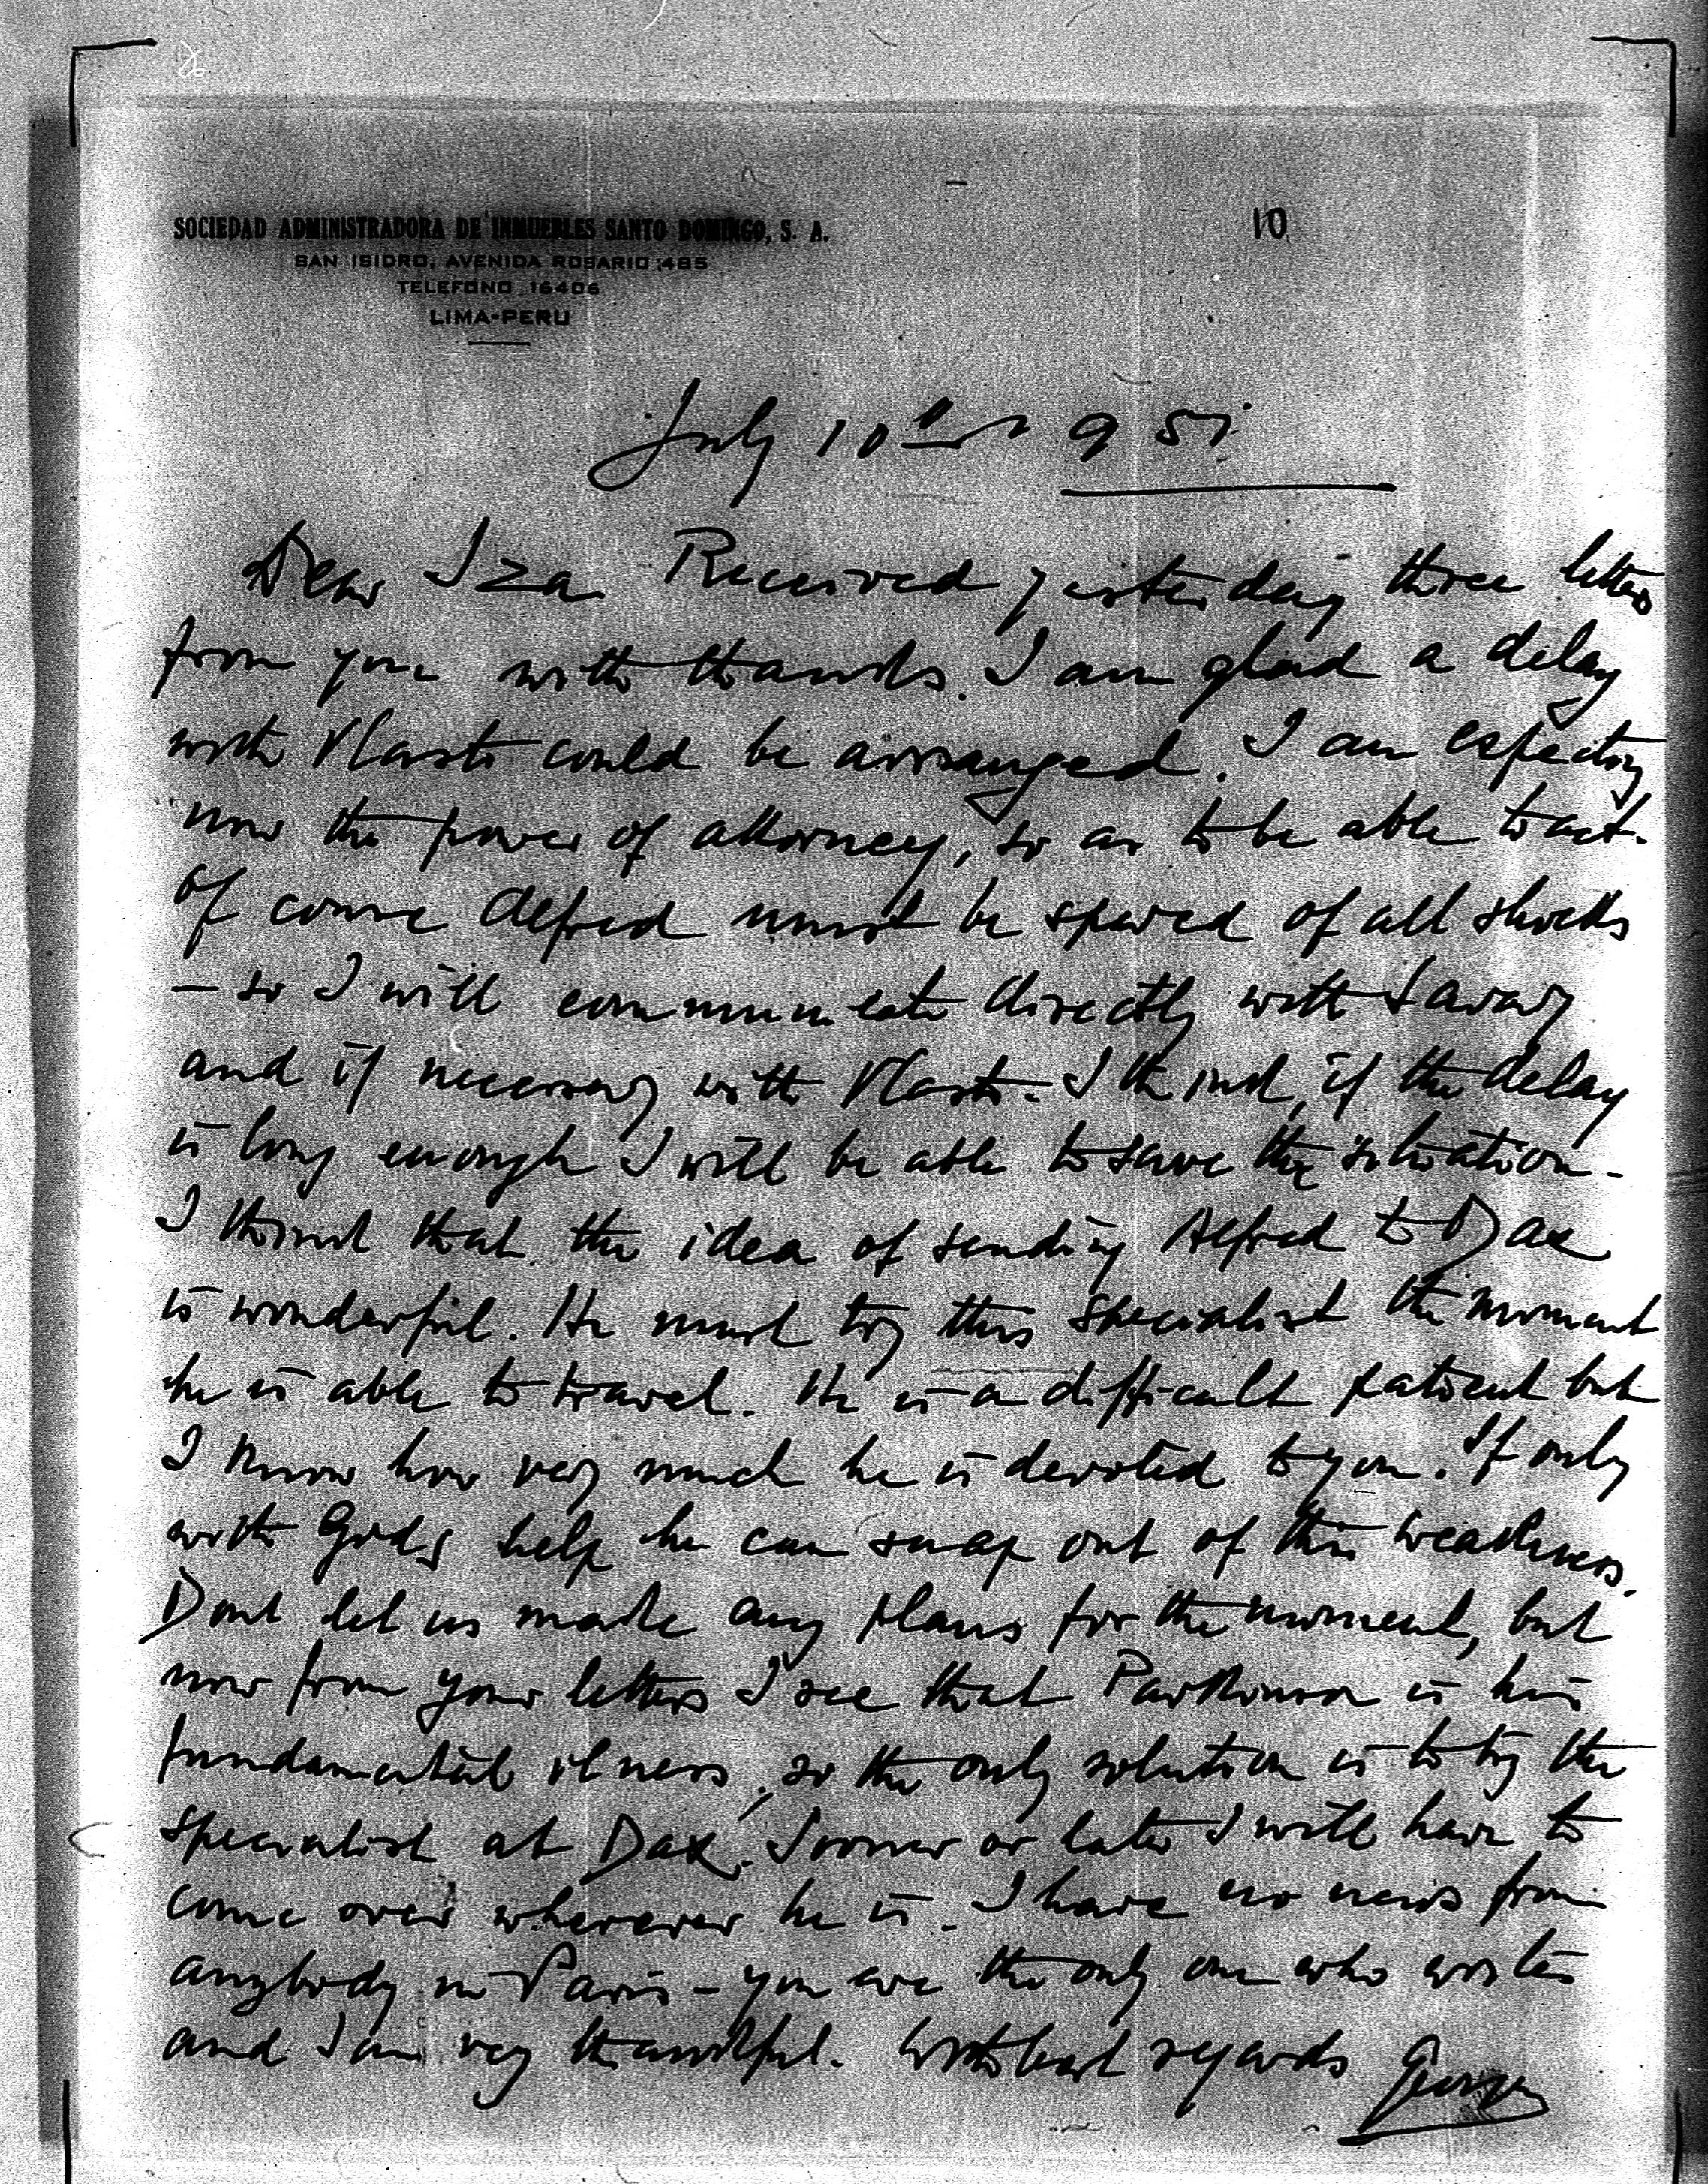 SOCIEDAD ADMINISTRADORA DE INMUEBLES SANTO DOMINGO, S. A.
SAN ISIDRO, AVENIDA ROSARIO 485
TELEFONO 16406
LIMA-PERU
10
July 10th 1951
Dear Iza Received yesterday three letters
from you with thanks. I am glad a delay
with Vlasto could be arranged. I am expecting
now the power of attorney, so as to be able to act.
Of course Alfred must be spared of all shocks
- so I will communicate directly with Savary
and if necessary with Vlasto - I think, if the delay
is long enough I will be able to save the situation -
I think that the idea of sending Alfred to Dax
is wonderful. He must try this specialist the moment
he is able to travel. He is a difficult patient but
I know how very much he is devoted to you. If only
with Gods help he can snap out of this weakness.
Dont let us make any plans for the moment, but
now from your letters I see that Parkinson is his
fundamental ilness, so the only solution is to try the
specialist at Dax. Sooner or later I will have to
come over wherever he is. I have no news from
anybody in Paris - you are the only one who writes
and I am very thankful. With best regards George